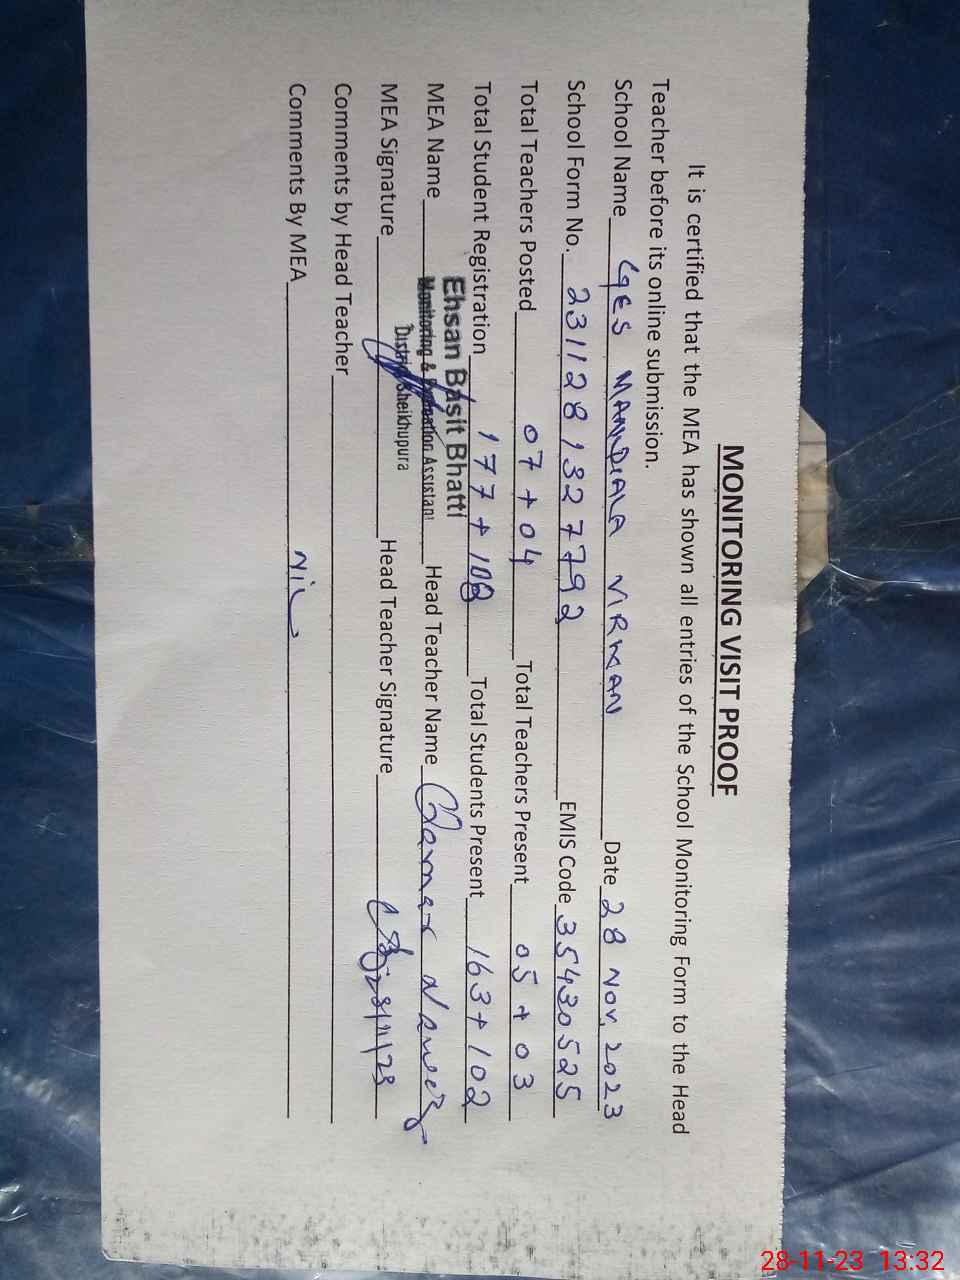 MONITORING VISIT PROOF
It is certified that the MEA has shown all entries of the School Monitoring Form to the Head
Teacher before its online submission.
School Name GES MANDIALA VIRMAN Date 28 Nov, 2023
School Form No. 2311281327792 EMIS Code 35430525
Total Teachers Posted 07 + 04 Total Teachers Present 05 + 03
Total Student Registration 177 + 108 Total Students Present 163 + 102
Ehsan Basit Bhatti
MEA Name Monitoring & Evaluation Assistant Head Teacher Name
District Sheikhupura
MEA Signature Head Teacher Signature 28/11/23
Comments by Head Teacher
Comments By MEA Nil
28-11-23 13:32